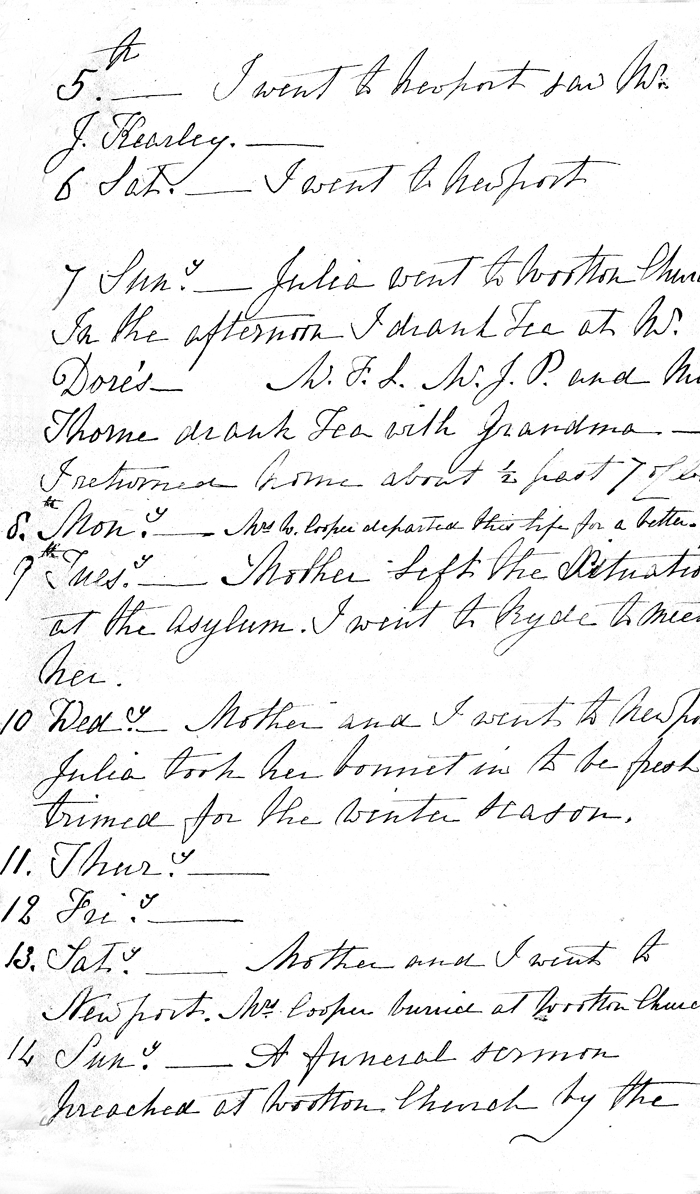 5.th — I went to Newport saw Mr.
J. Kearley. —
6 Sat. — I went to Newport
7 Sun.y — Julia went to Wootton Chur
In the afternoon I drank Tea at Mr.
Dore's — M. F. L. M. J. P. and M
Thorne drank Tea with Grandma —
I returned home about ½ past 7 o'cl
8.th Mon.y — Mrs W. Cooper departed this life for a better.
9th Tues.y — Mother left the Situatio
at the Asylum. I went to Ryde to mee
her.
10 Wed.y — Mother and I went to Newpo
Julia took her bonnet in to be fresh
trimed for the winter season.
11. Thur.y —
12 Fri.y —
13. Sat.y — Mother and I went to
Newport. Mrs Cooper buried at Wootton Churc
14 Sun.y — A funeral sermon
preached at Wootton Church by the